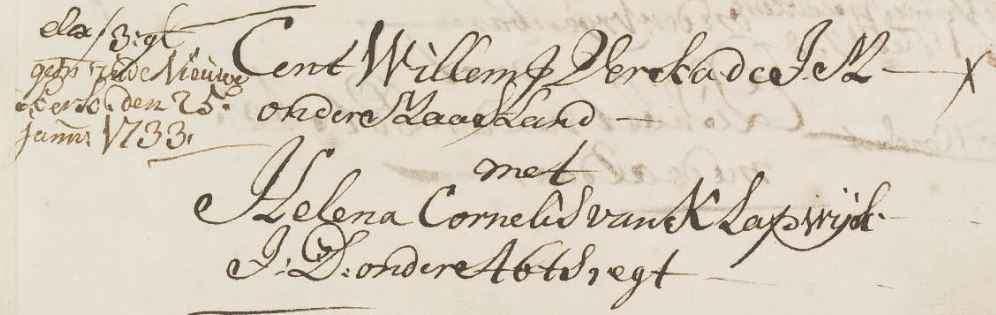 getr: in de Nieuwe
kerk den 25e
janu: 1733.
Cent Willemsz Verkade J M
onder Maasland
met
Helena Cornelis van Klapwijk
J: D: onder Abtsregt